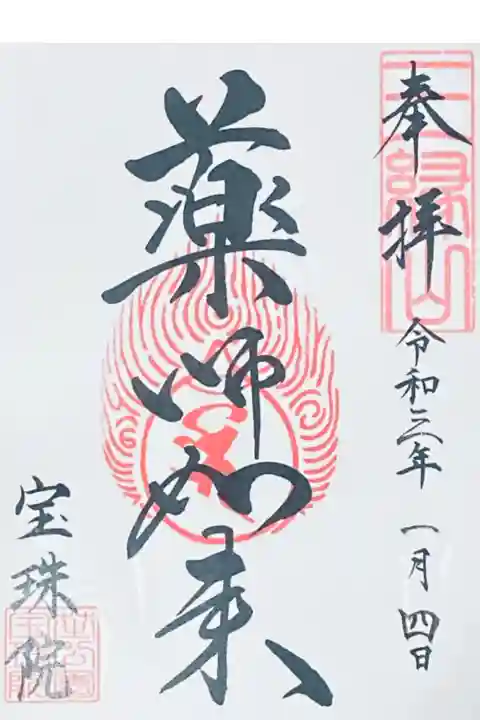 奉拝
三縁山
令和三年 一月四日
薬師如来
宝珠院